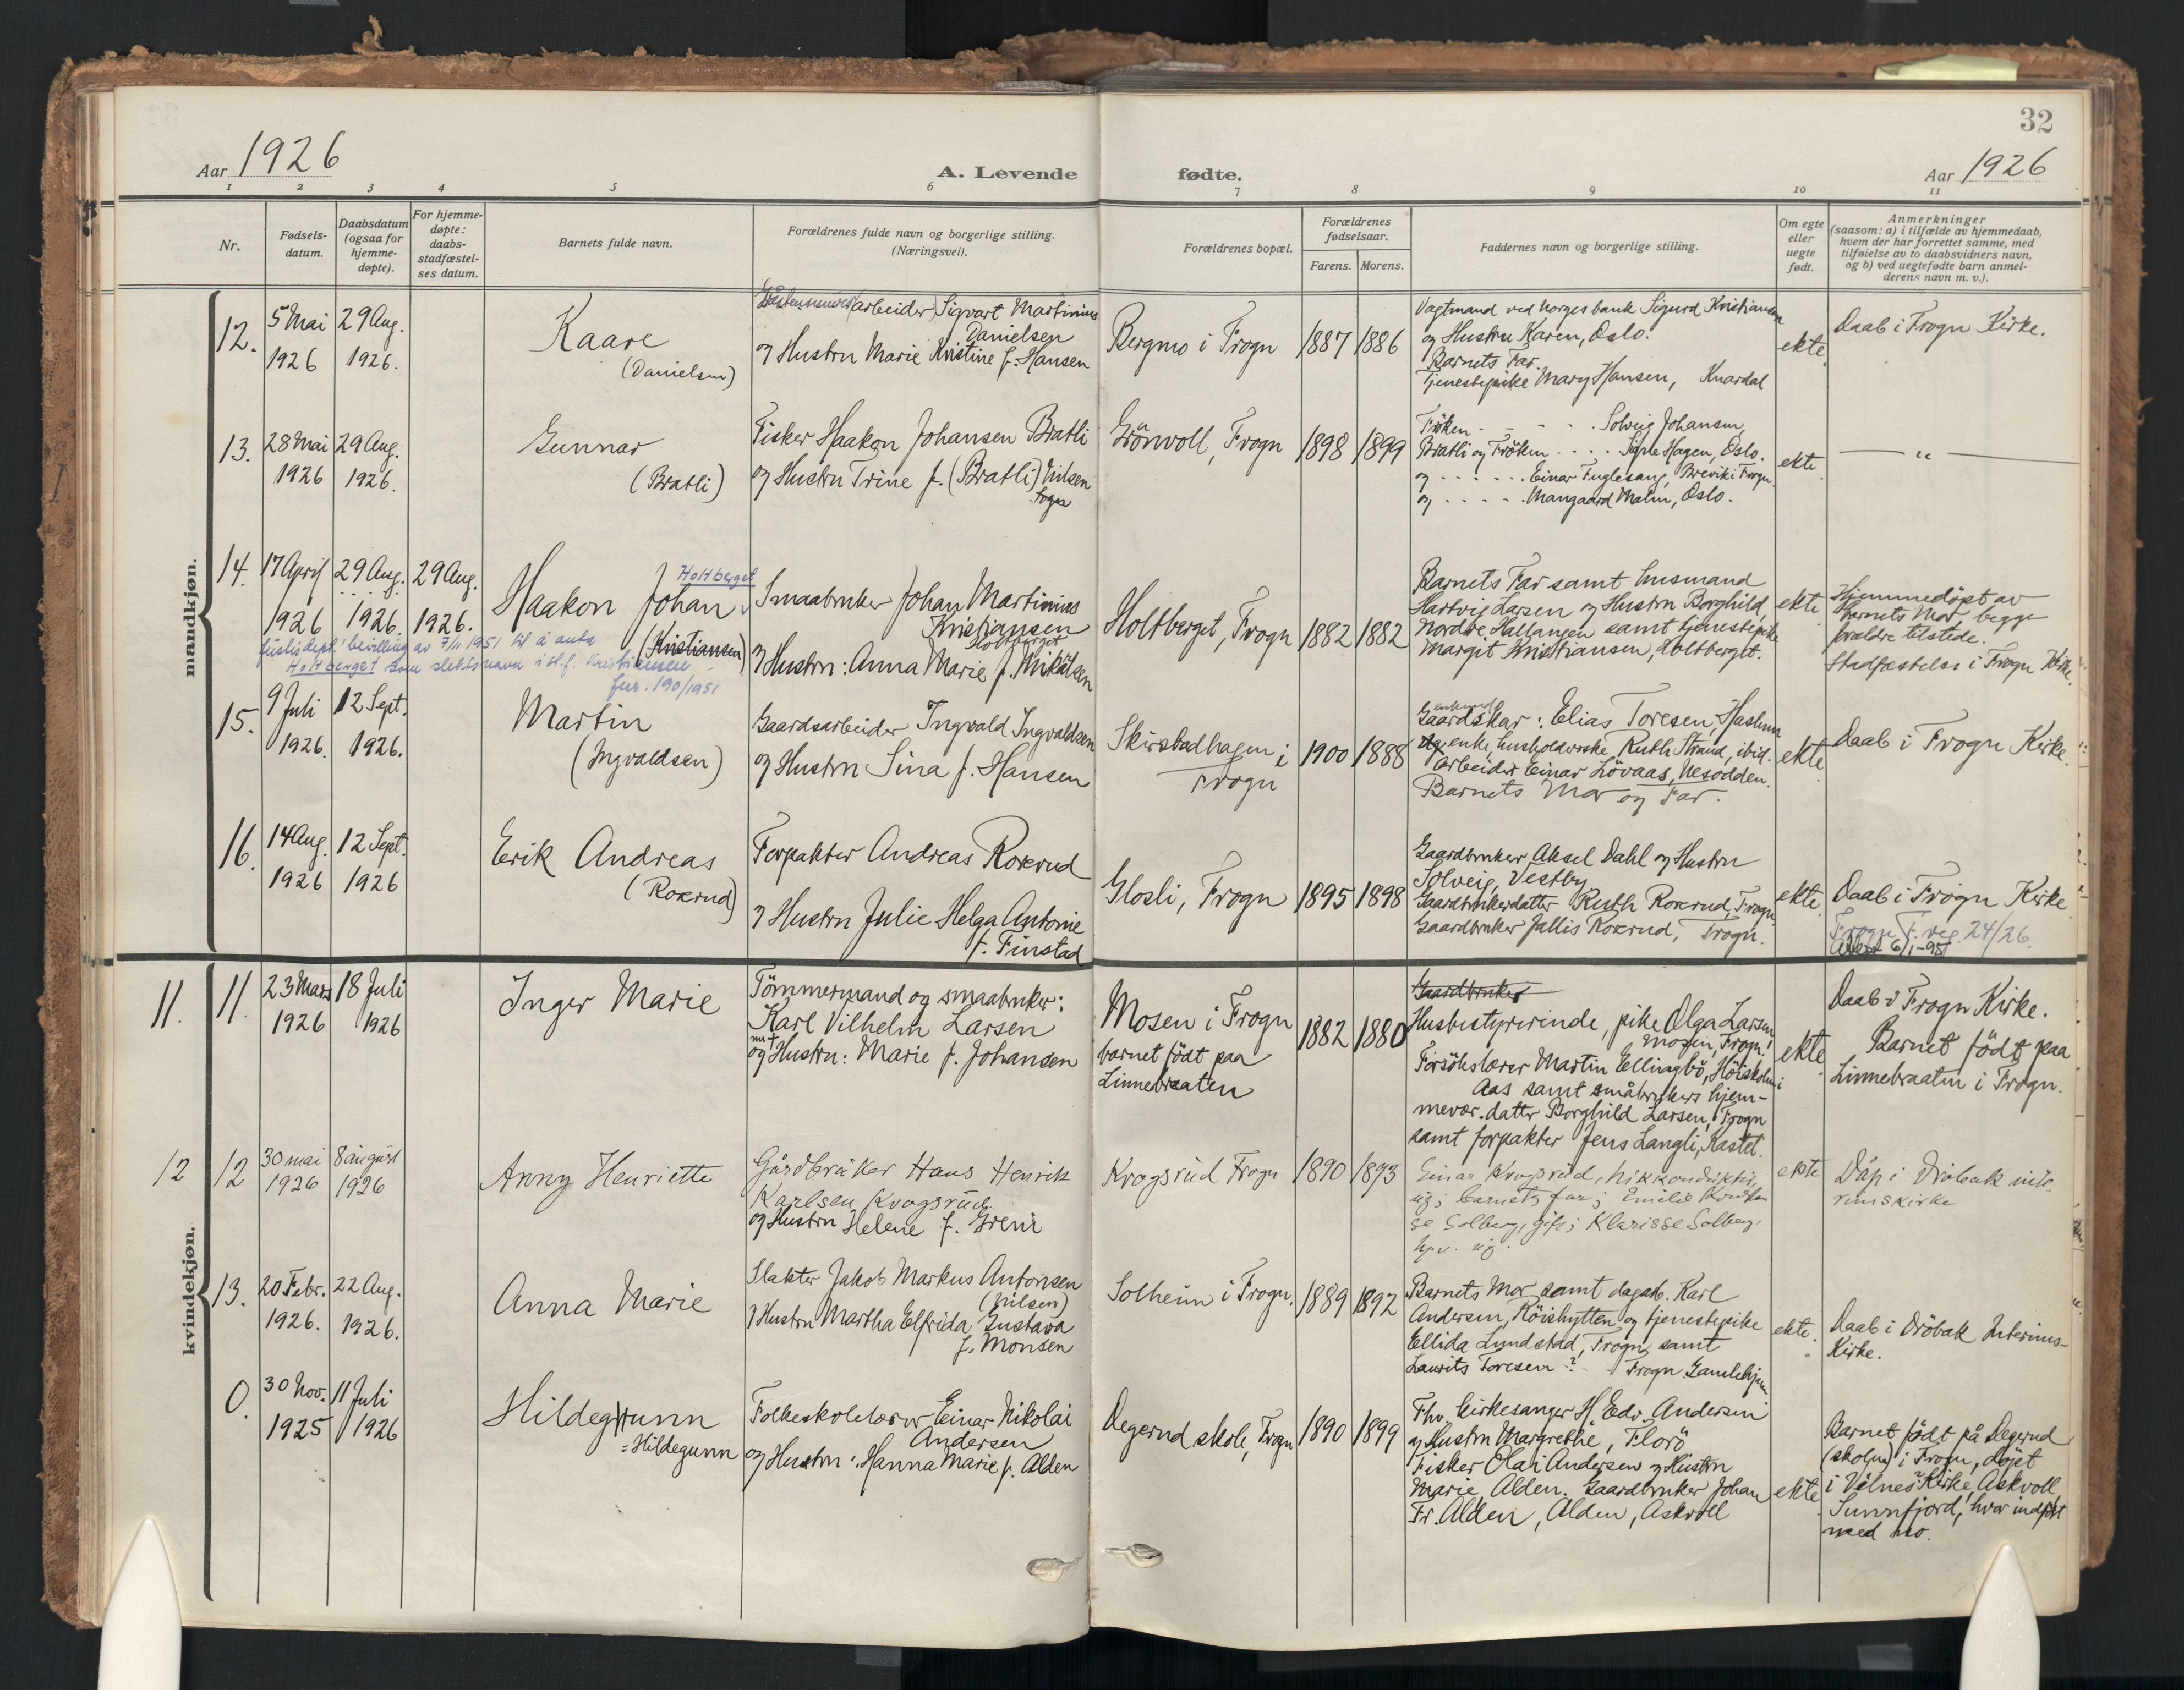 32
Aar 1926
A. Levende fødte.
Aar 1926
1 2 3 4 5 6 7 8 9 10 11
Nr.
Fødsels-
datum.
Daabsdatum
(ogsaa for
hjemme-
døpte).
For hjemme-
døpte:
daabs-
stadfæstel-
ses datum.
Barnets fulde navn.
Forældrenes fulde navn og borgerlige stilling.
(Næringsvei).
Forældrenes bopæl.
Forældrenes
fødselsaar.
Farens. Morens.
Faddernes navn og borgerlige stilling.
Om egte
eller
uegte
født.
Anmerkninger
(saasom: a) i tilfælde av hjemmedaab,
hvem der har forrettet samme, med
tilføielse av to daabsvidners navn,
og b) ved uegtefødte barn anmel-
derens navn m. v.).
mandkjøn.
12.
5 Mai
1926
29 Aug.
1926.
Kaare
(Danielsen)
arbeider Sigvart Martinius
Danielsen
og Hustru Marie Kristine f. Hansen
Bergmo i Frogn
1887 1886
Vagtmand ved Norges bank Sigurd Kristiansen
og Hustru Karen, Oslo.
Barnets Far.
Tjenestepike Mary Hansen, Knardal
ekte
Daab i Frogn Kirke.
13.
28 Mai
1926
29 Aug.
1926.
Gunnar
(Bratli)
Fisker Haakon Johansen Bratli
og Hustru Trine f. (Bratli) Nilsen
Sogn
Grönvoll, Frogn
1898 1899
Fröken - - - - Solveig Johansen,
Bratli og Fröken . . . . Signe Hagen, Oslo.
og . . . . . . Einar Fuglesang, Brevik i Frogn.
og . . . . . Mangaard Malm, Oslo.
ekte
— " —
14.
17 April
1926
29 Aug.
1926.
29 Aug.
1926.
Holtberget
Haakon Johan
(Kristiansen)
justisdept' bevilling av 7/11 1951 til å anta
Holtberget som slektsnavn i st. f. Kristiansen
jnr. 190/1951
Smaabruker Johan Martinius
Kristiansen
Holtberget
og Hustru: Anna Marie f. Mikälsen
Holtberget, Frogn
1882 1882
Barnets Far samt husmand
Hartvig Larsen og Hustru Borghild,
Nordre Hallangen samt tjenestepike
Margit Kristiansen, Holtberget.
ekte
Hjemmedöpt av
barnets Mor, begge
forældre tilstede.
Stadfæstelse i Frogn Kirke.
15.
9 Juli
1926.
12 Sept.
1926.
Martin
(Ingvaldsen)
Gaardsarbeider Ingvald Ingvaldsen
og Hustru Sina f. Hansen
Skirstadhagen i
Frogn
1900 1888
enkemd
Gaardskar: Elias Toresen, Haslum
og enke, husholderske Ruth Strand, ibid.
Arbeider Einar Lövaas, Nesodden.
Barnets Mor og Far.
ekte
Daab i Frogn Kirke.
16.
14 Aug.
1926
12 Sept.
1926
Erik Andreas
(Rokrud)
Forpakter Andreas Rokrud
og Hustru Julie Helga Antonie
f. Finstad
Glosli, Frogn
1895 1898
Gaardbruker Aksel Dahl og Hustru
Solveig, Vestby
Gaardbrukerdatter Ruth Rokrud, Frogn
Gaardbruker Jallis Rokrud, Frogn.
ekte.
Daab i Frogn Kirke
Frogn F. reg. 24/26.
kvindekjøn.
11. 11.
23 Mars
1926
18 Juli
1926
Inger Marie
Tömmermand og smaabruker:
Karl Vilhelm Larsen
og Hustru: Marie f. Johansen
Mosen i Frogn
barnet födt paa
Linnebraaten
1882 1880
Gaardbruker
Husbestyrerinde, pike Olga Larsen
Mosen, Frogn.
Forsökslærer Martin Ellingbö, Höiskolen i
Aas samt småbrukers hjem-
mevær. datter Borghild Larsen, Frogn
samt forpakter Jens Langli, Kastet.
ekte
Daab i Frogn Kirke.
Barnet födt paa
Linnebraaten i Frogn.
12 12
30 mai
1926
8 august
1926
Anny Henriette
Gårdbruker Hans Henrik
Karlsen Krogsrud
og Hustru Helene f. Grenir
Krogsrud Frogn
1890 1893
Einar Krogsrud,
ug; barnets far; Emilie
Solberg, gift; Klarisse Solberg,
ug.
ekte
Dåp i Dröbak inte-
rimskirke
13.
20 Febr.
1926.
22 Aug.
1926.
Anna Marie
Slakter Jakob Markus Antonsen
(Nilsen)
og Hustru Martha Elfrida Gustava
f. Monsen
Solheim i Frogn.
1889 1892
Barnets Mor samt dagarb. Karl
Andersen, Röishytten og tjenestepike
Ellida Lundstad, Frogn, samt
Laurits Toresen ? - Frogn Gamlehjem
ekte.
Daab i Dröbak Interims-
Kirke.
0.
30 Nov.
1925
11 Juli
1926
Hildegunn
= Hildegunn
Folkeskolelærer Einar Nikolai
Andersen
og Hustru: Hanna Marie f. Alden
Degerud skole, Frogn
1890 1899
Fhv. Kirkesanger H. Edv. Andersen
og Hustru Margrethe, Florö
Fisker Olai Andersen og Hustru
Marie Alden. Gaardbruker Johan
Fr. Alden, Alden, Askvoll
ekte
Barnet födt på Degerud
(skolen) i Frogn, döpt
i Vilnes Kirke, Askvoll
Sunnfjord, hvor indfört
med no.